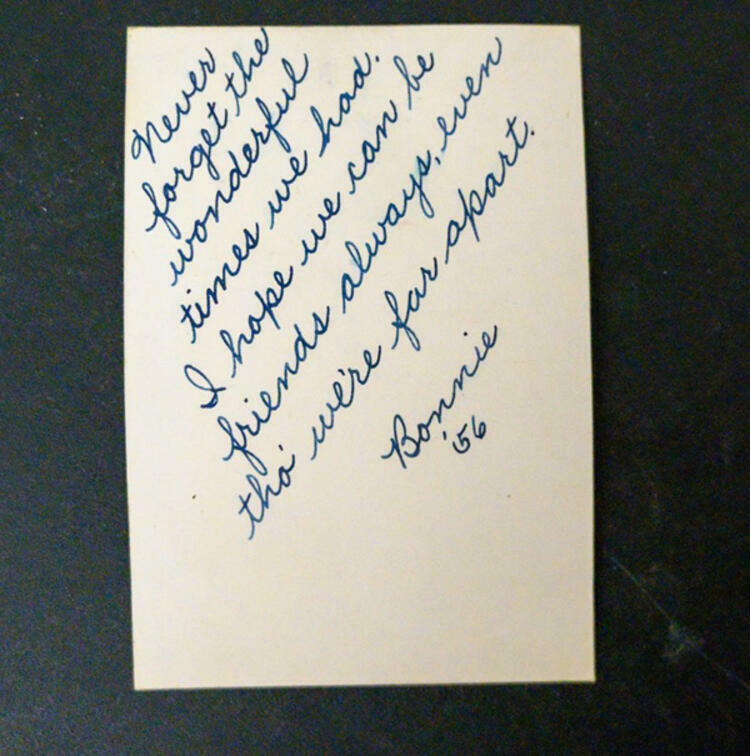 Never
forget the
wonderful
times we had.
I hope we can be
friends always, even
tho' we're far apart.
Bonnie
'56